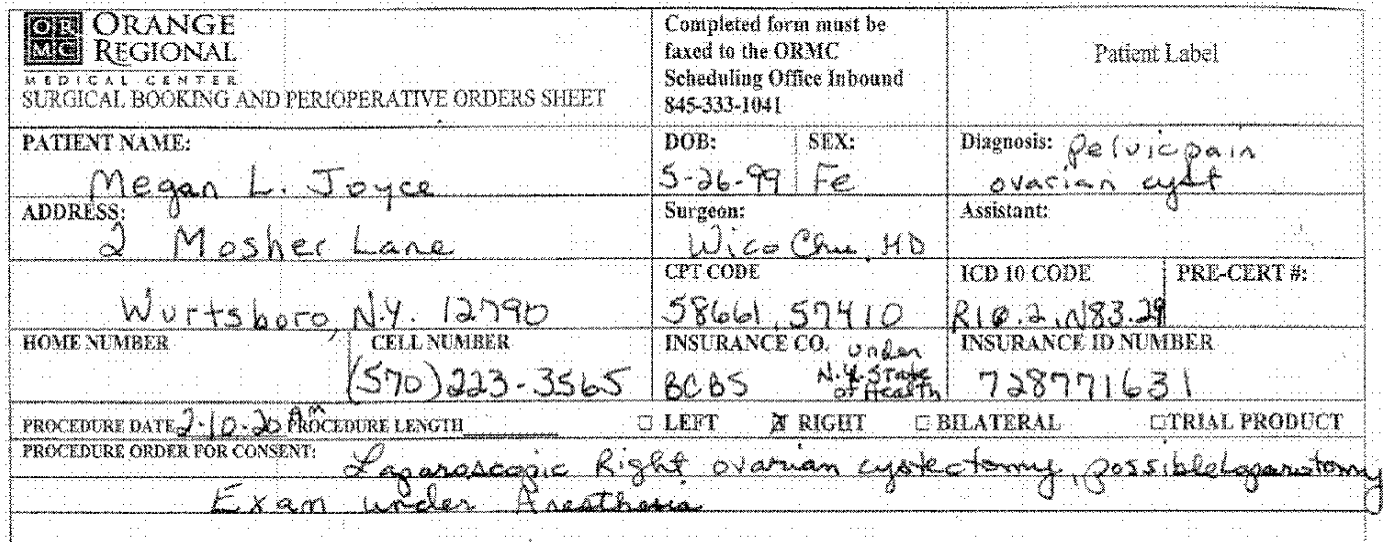 OR ORANGE
MC REGIONAL
MEDICAL CENTER
SURGICAL BOOKING AND PERIOPERATIVE ORDERS SHEET
Completed form must be
faxed to the ORMC
Scheduling Office Inbound
845-333-1041
Patient Label
PATIENT NAME:
Megan L. Joyce
DOB: 5-26-99
SEX: Fe
Diagnosis: Pelvic pain
ovarian cyst
ADDRESS:
2 Mosher Lane
Surgeon:
Wico Chu, MD
Assistant:
Wurtsboro, N.Y. 12790
CPT CODE
58661, 57410
ICD 10 CODE
R10.2, N83.29
PRE-CERT #:
HOME NUMBER
CELL NUMBER
(570)223-3565
INSURANCE CO. under
BCBS N.Y. State
of Health
INSURANCE ID NUMBER
728771631
PROCEDURE DATE 2-10-20 AM PROCEDURE LENGTH □ LEFT ☒ RIGHT □ BILATERAL □ TRIAL PRODUCT
PROCEDURE ORDER FOR CONSENT: Laparoscopic Right ovarian cystectomy, possible Laparotomy
Exam under Anesthesia